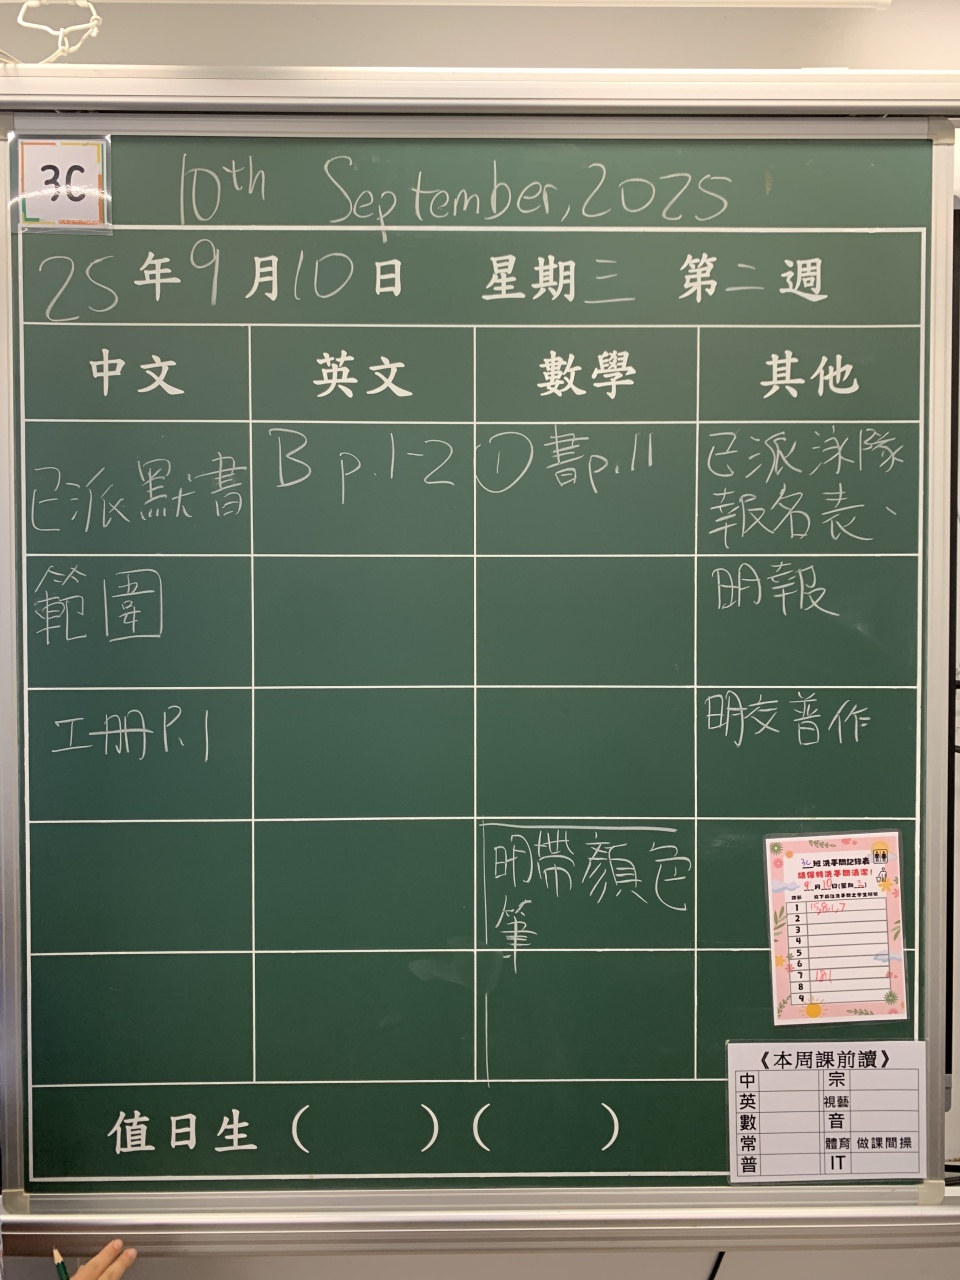 3C
10th September, 2025
25年9月10日 星期三 第二週
中文 英文 數學 其他
已派默書 B p.1-2 ①書p.11 已派泳隊
報名表、
範圍 明報
工冊P.1 明交普作
明帶顏色
筆
3C班洗手間記錄表
請保持洗手間清潔!
9月10日(星期三)
1
2
3
4
5
6
7
8
9
《本周課前讀》
中 宗
英 視藝
數 音
常 體育 做課間操
普 IT
值日生( )( )